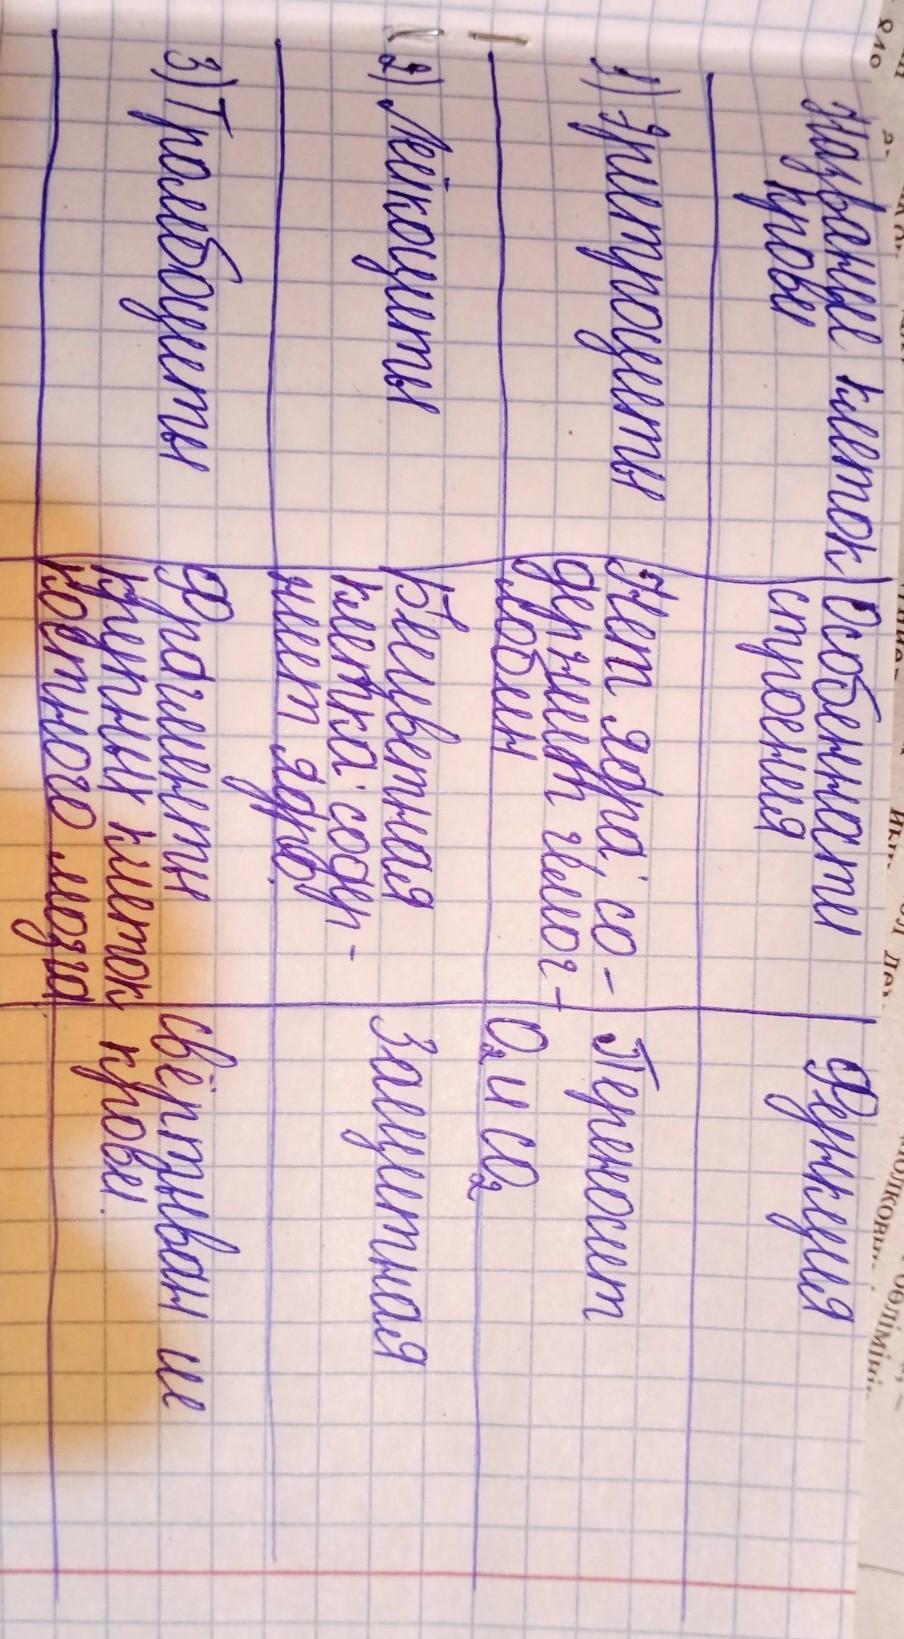 Название клеток
крови
Особенности
строения
Функция
1) Эритроциты
Нет ядра; со-
держит гемог-
лобин
Переносит
O₂ и CO₂
2) Лейкоциты
Бецветная
клетка; содер-
жит ядро.
Защитная
3) Тромбоциты
Фрагменты
крупных клеток
костного мозга
свёртывание
крови.